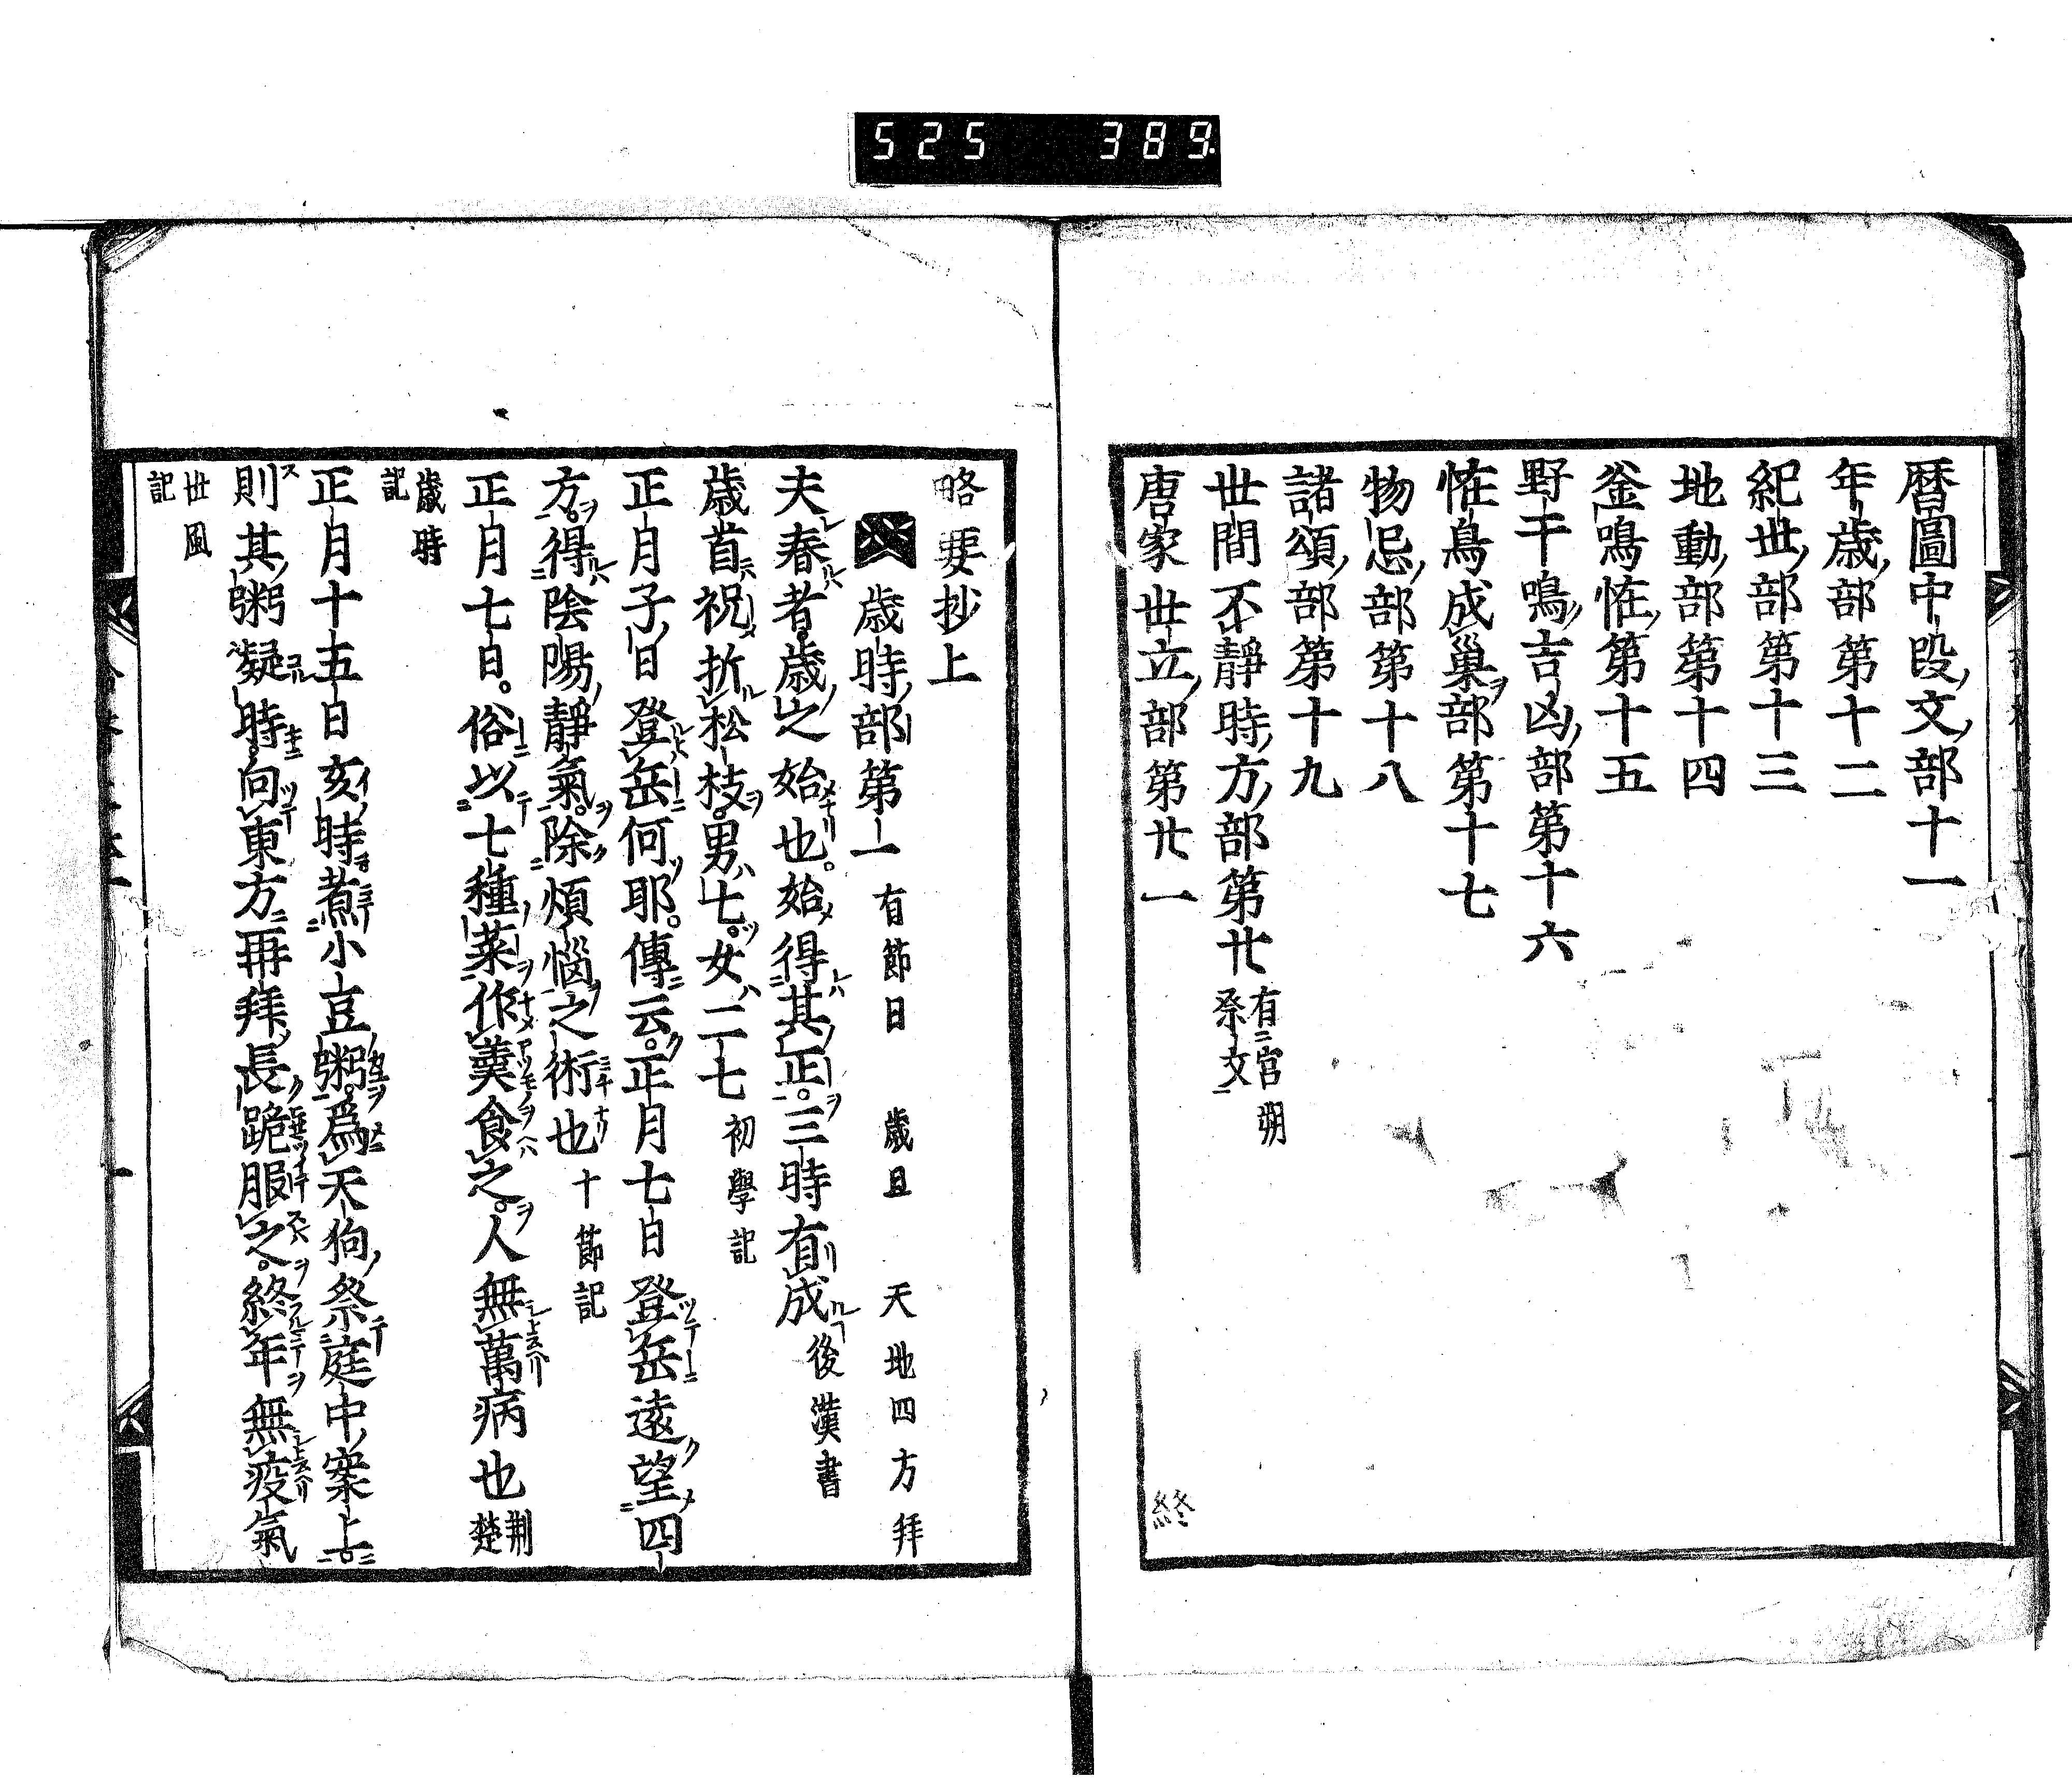 525 389
暦圖中段文部十一
年歳部第十二
紀世部第十三
地動部第十四
釜鳴恠第十五
野干鳴吉凶部第十六
恠鳥成巢部第十七
物忌部第十八
諸頌部第十九
世間不靜時方部第廿
有宮朔
祭文
唐家世立部第廿一
終
略要抄上
歳時部第一 有節日 歳旦 天地四方拜
夫春者歳之始也。始得其正。三時有成 後漢書
歳首祝折松枝。男七。女二七 初學記
正月子日登岳何耶。傳云。正月七日登岳遠望四
方。得陰陽靜氣。除煩惱之術也 十節記
正月七日。俗以七種菜作羹食之。人無萬病也 荆楚
歲時
記
正月十五日亥時煮小豆粥。爲天狗祭庭中案上。
則其粥凝時。向東方再拜長跪服之。終年無疫氣
世風
記